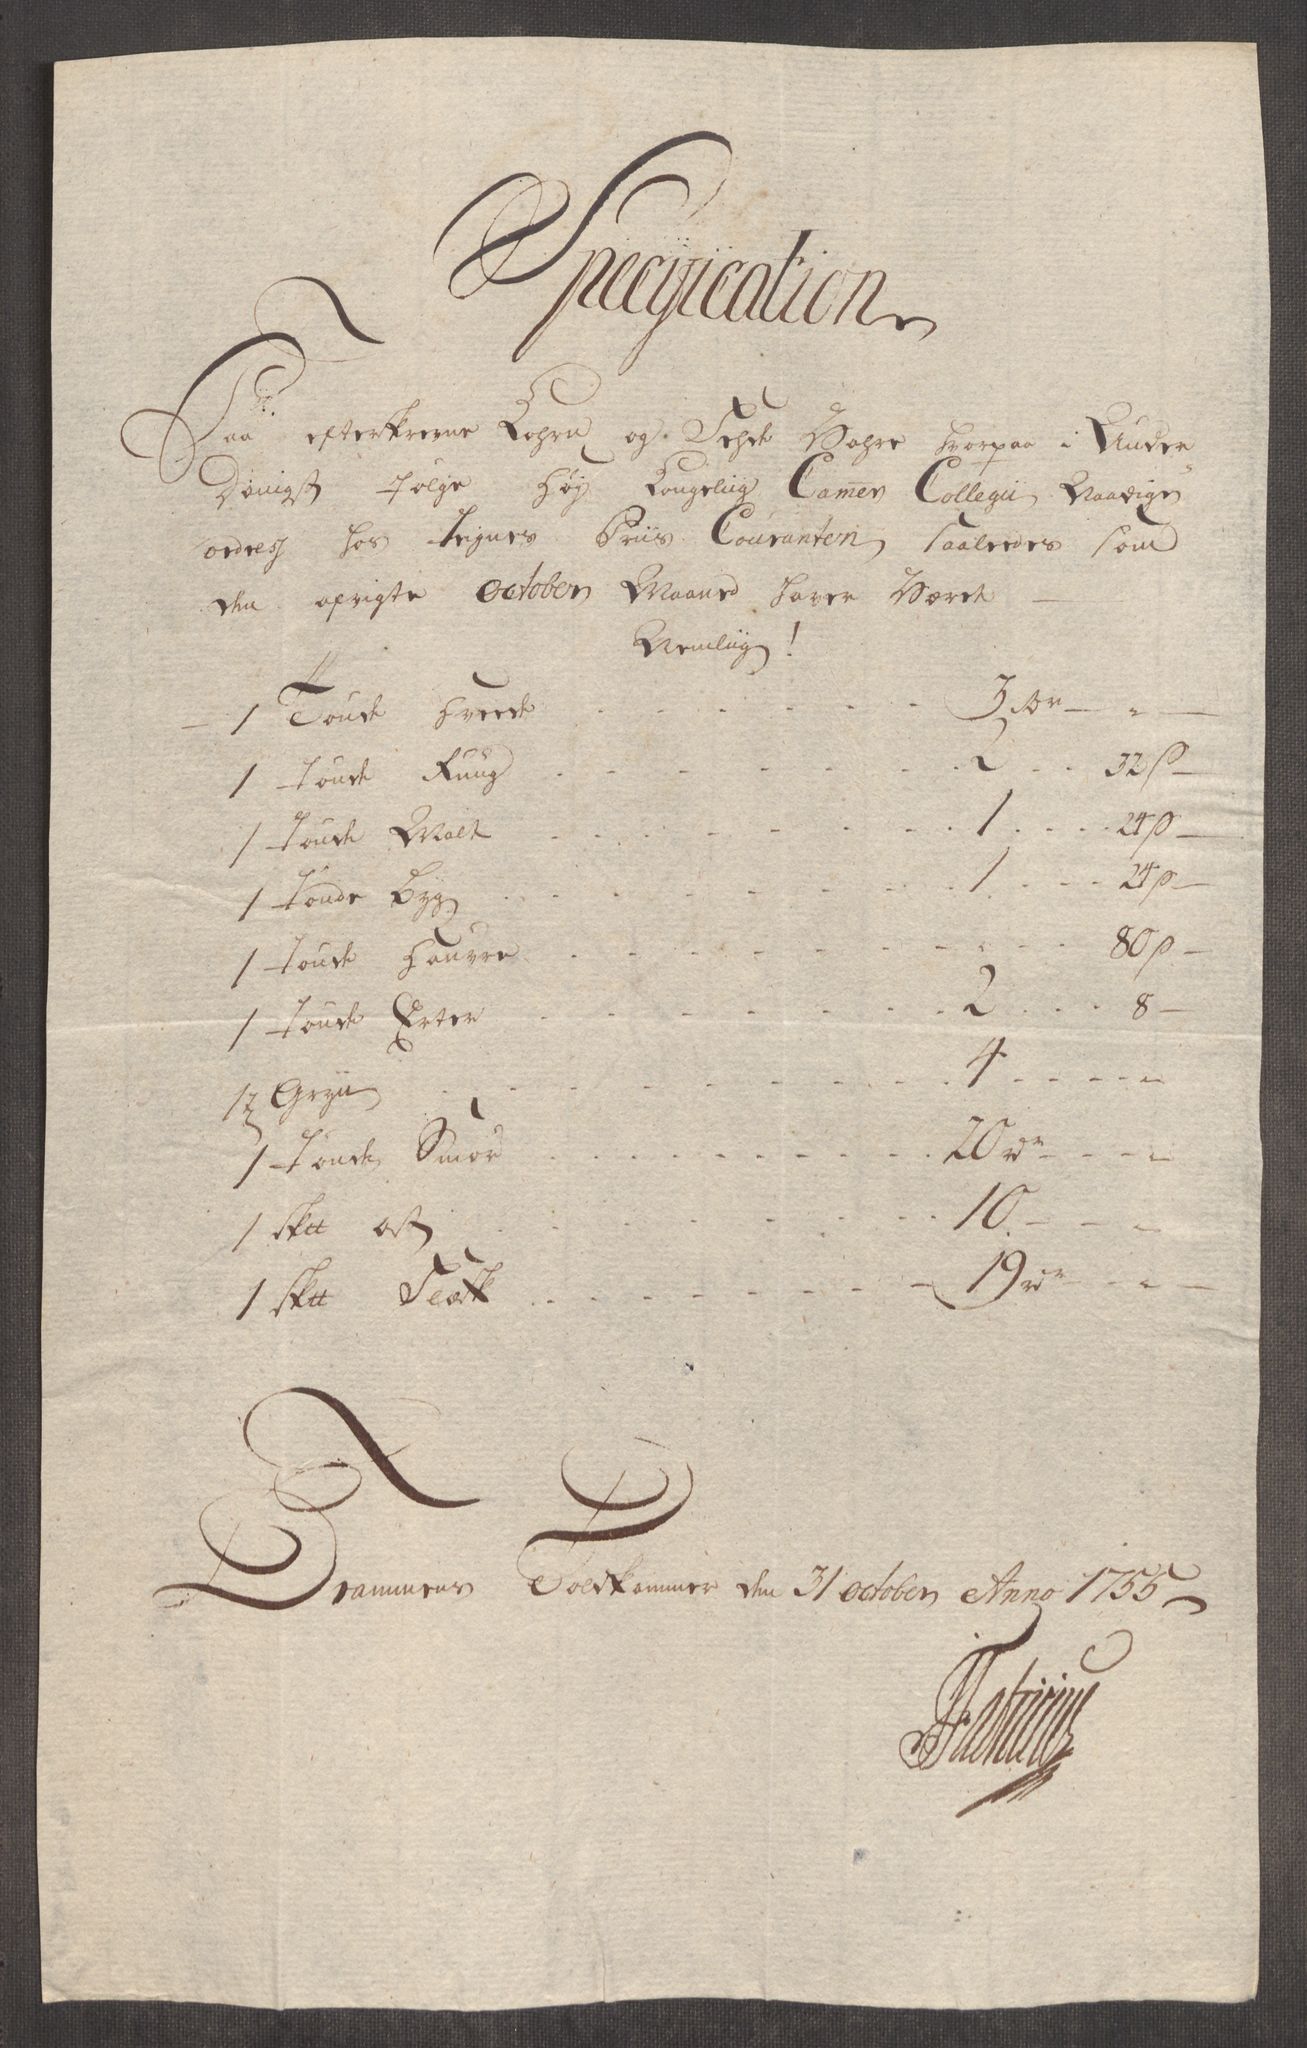 Specification
Paa efterskrevne Kohrn og Fehde Wahre hvorpaa i Under
Danigst følge Høy Kongeliig Camer Collegii Naadige
ordres hos tegnes Priis Couranten saaledes som
den afvigte October Maaned haver Wæret
Nemliig!
1 Tønde Hvede 3 Rdr "
1 tønde Ruug 2 32 ß
1 tønde Malt 1 24 ß
1 tønde Byg 1 24 ß
1 tønde Hauvre " 80 ß
1 tønde Erter 2 8
1 t Gryn 4 "
1 tønde Smør 20 rdr "
1 sk℔ ost 10 "
1 sk℔ Flesk 19 rdr "
Drammens Toldkammer den 31 October Anno 1755